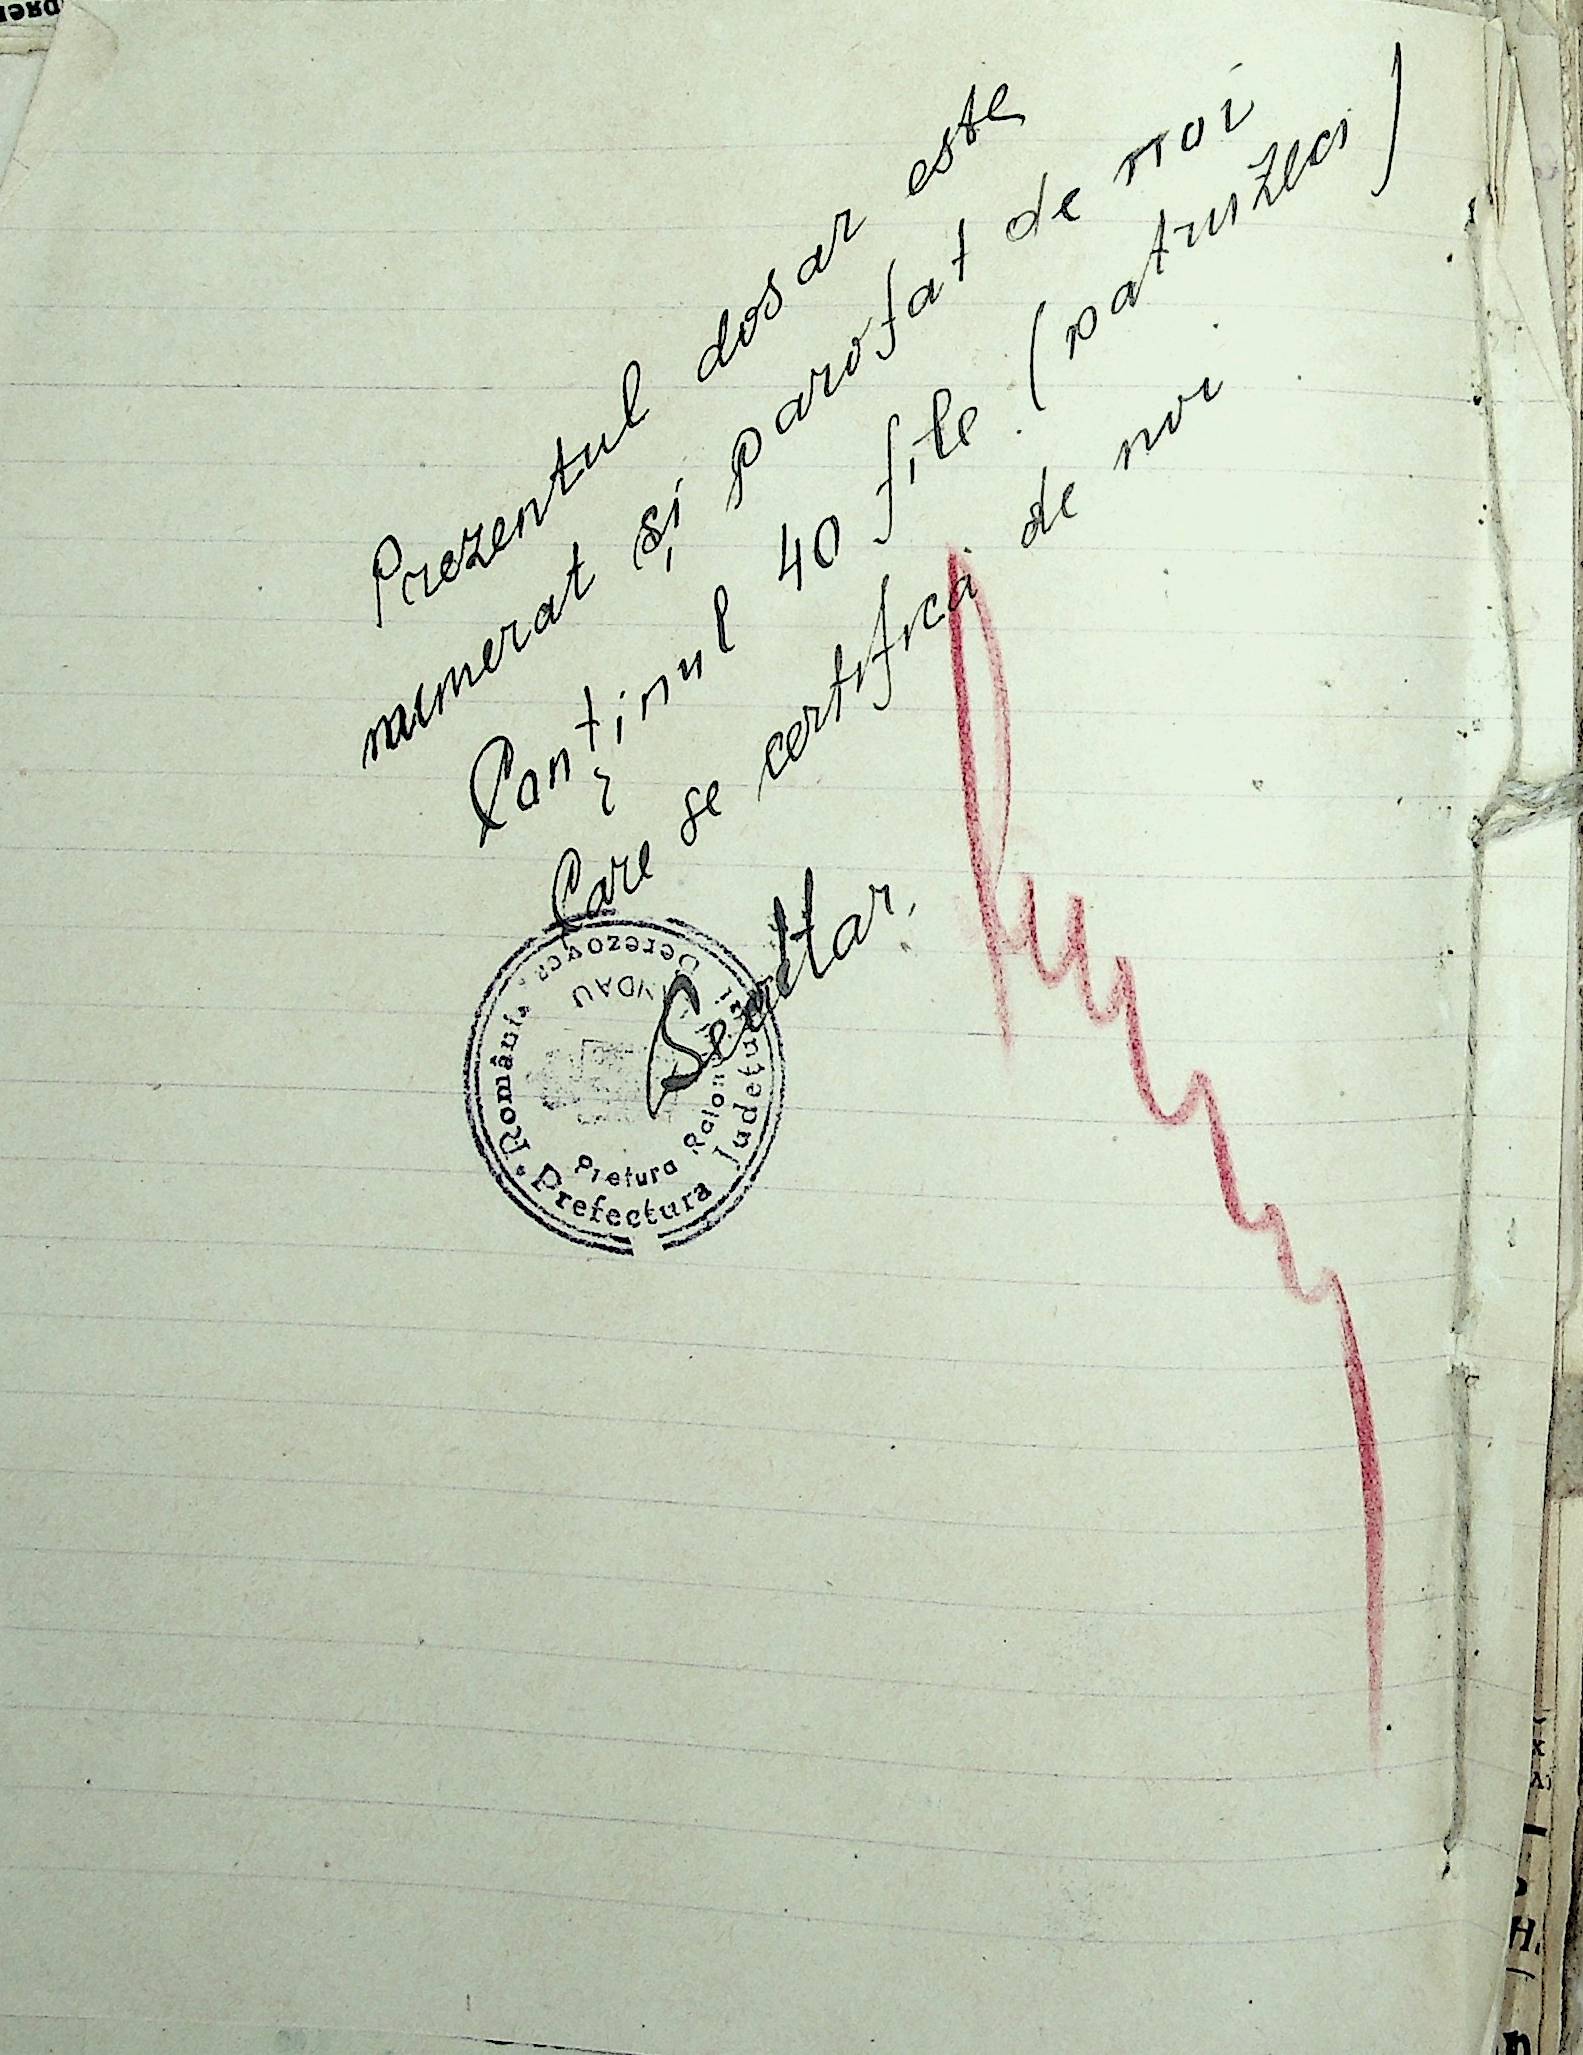 Prezentul dosar este
numerat și parofat de noi
Conținul 40 file (patruzeci)
Care se certifică de noi
Secretar,
România
Prefectura Județului Berezovca
Pretura Raionului